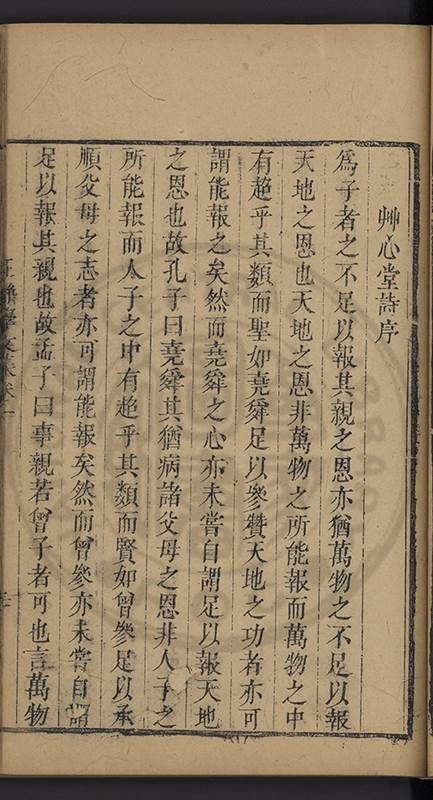 艸心堂詩序
為子者之不足以報其親之恩亦猶萬物之不足以報
天地之恩也天地之恩非萬物之所能報而萬物之中
有超乎其類而聖如堯舜足以參贊天地之功者亦可
謂能報之矣然而堯舜之心亦未嘗自謂足以報天地
之恩也故孔子曰堯舜其猶病諸父母之恩非人子之
所能報而人子之中有超乎其類而賢如曾參足以承
順父母之志者亦可謂能報矣然而曾參亦未嘗自謂
足以報其親也故孟子曰事親若曾子者可也言萬物